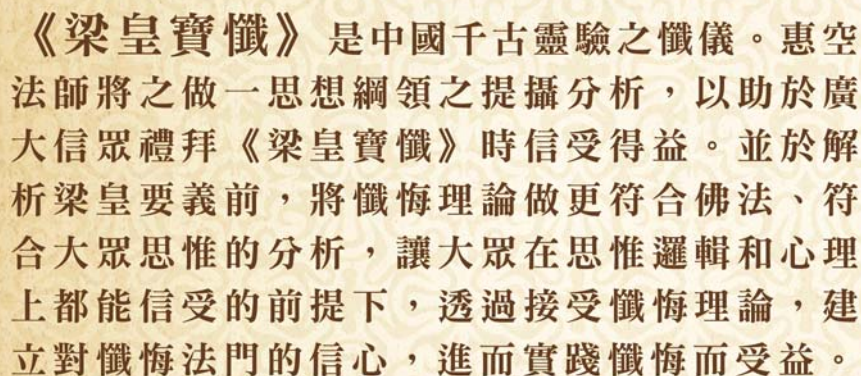 《梁皇寶懺》是中國千古靈驗之懺儀。惠空
法師將之做一思想綱領之提攝分析，以助於廣
大信眾禮拜《梁皇寶懺》時信受得益。並於解
析梁皇要義前，將懺悔理論做更符合佛法、符
合大眾思惟的分析，讓大眾在思惟邏輯和心理
上都能信受的前提下，透過接受懺悔理論，建
立對懺悔法門的信心，進而實踐懺悔而受益。